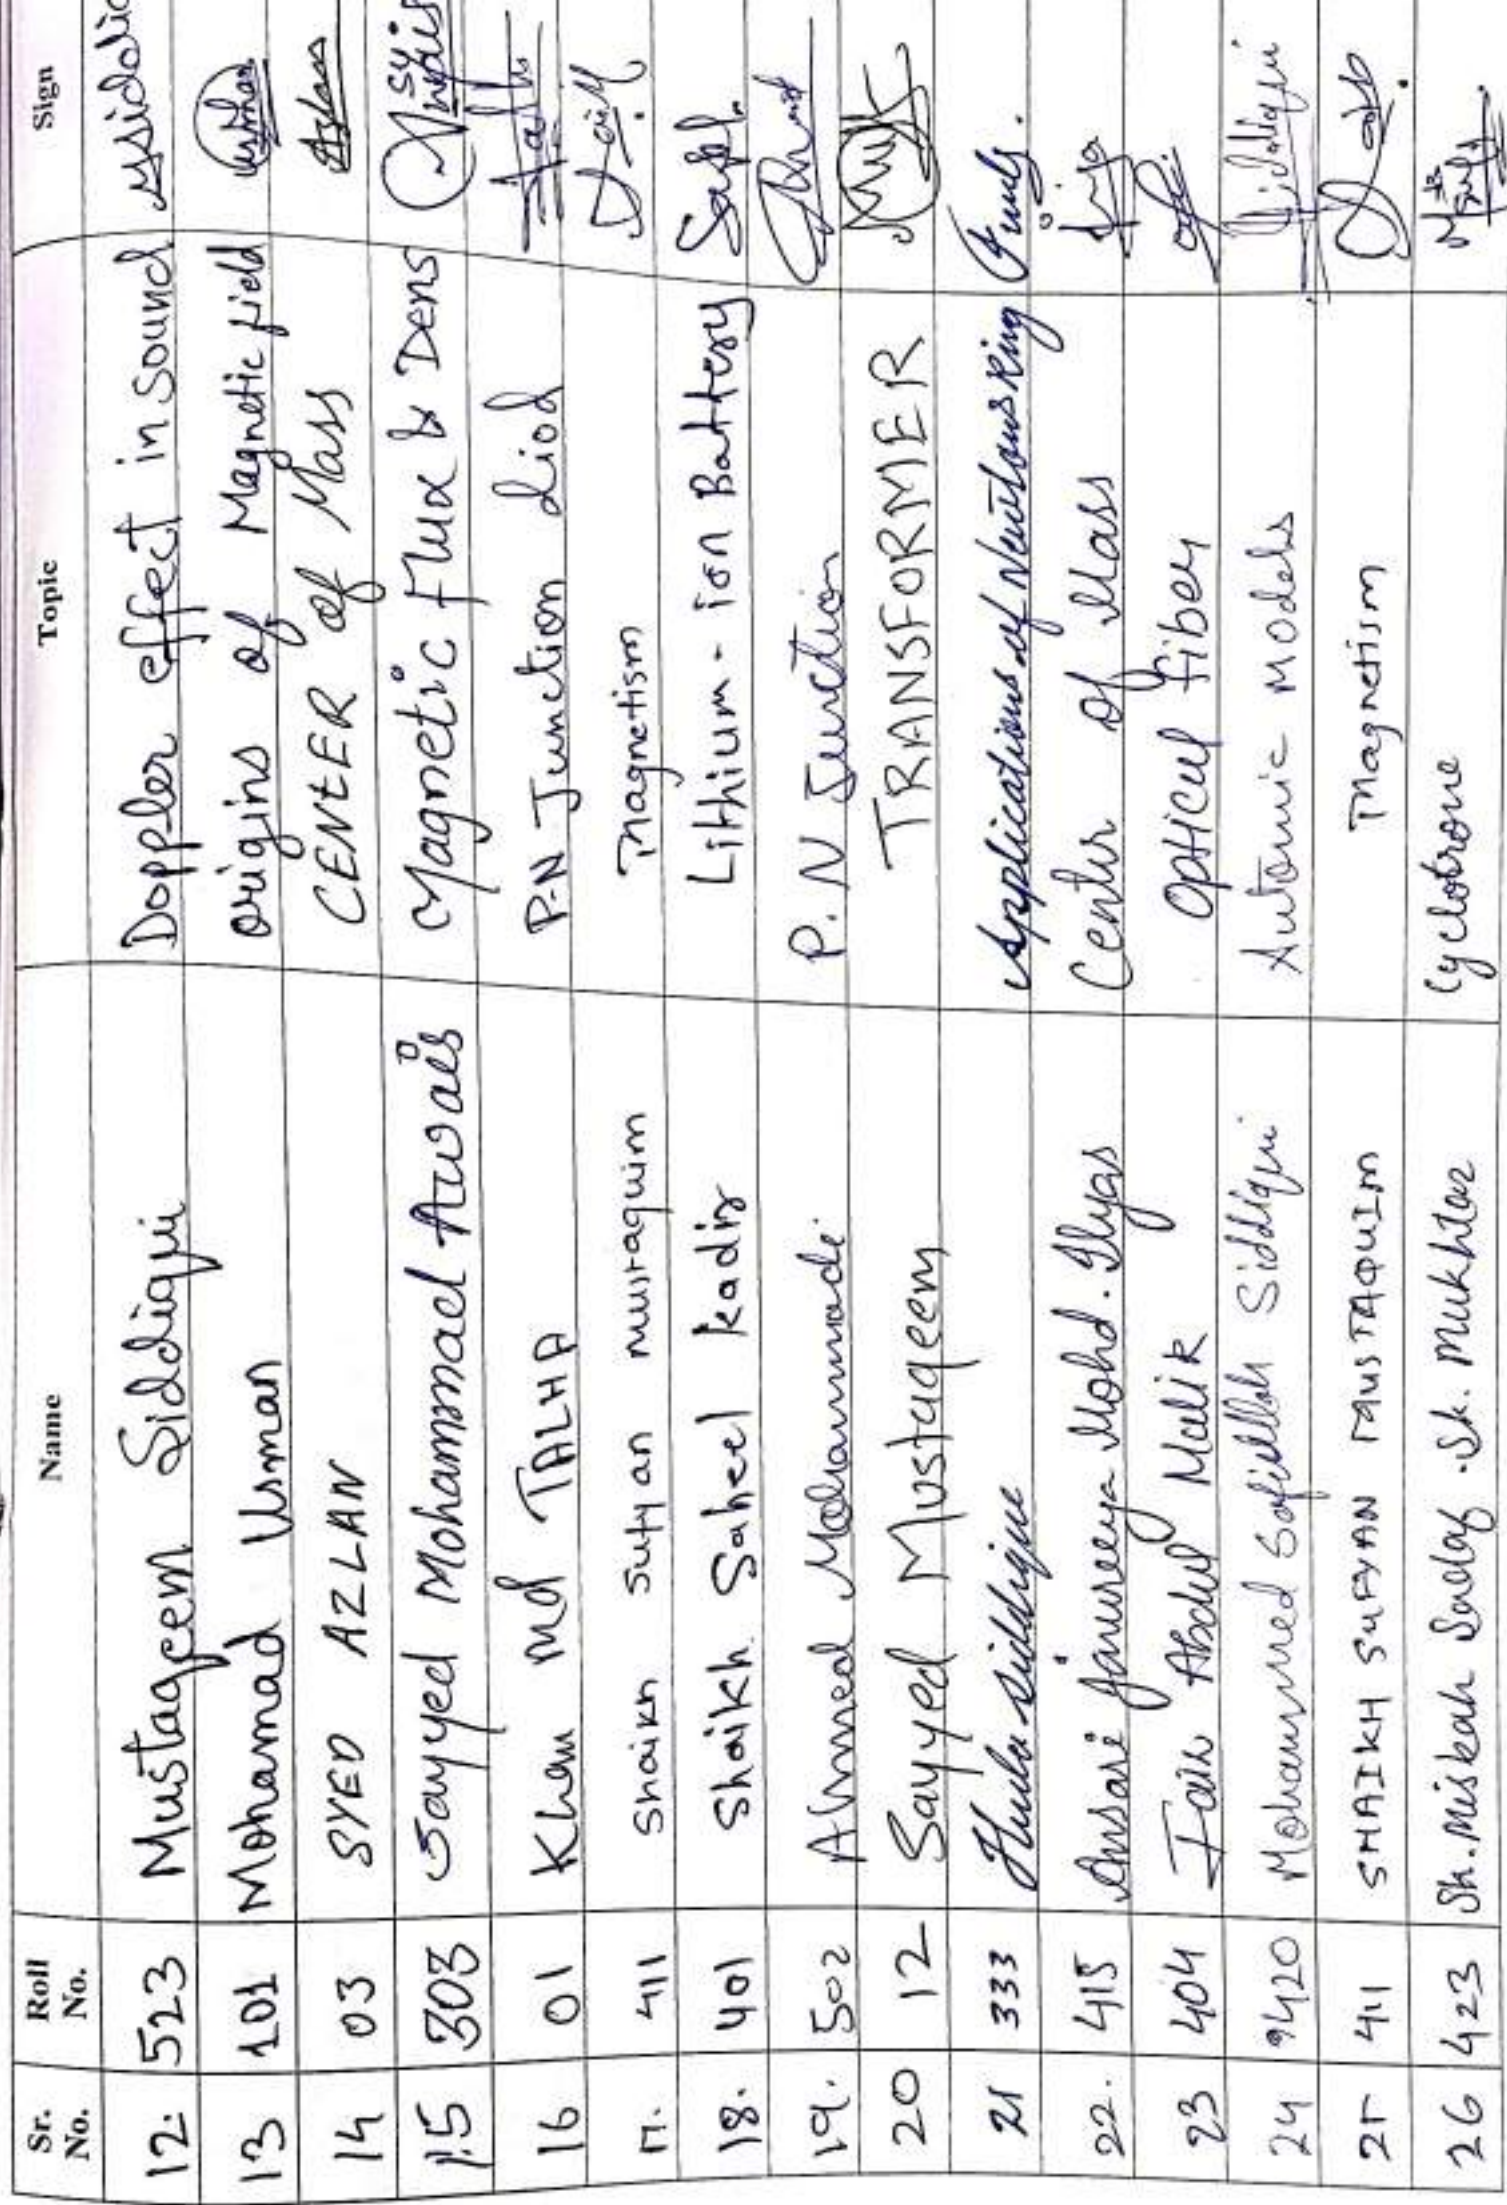 Sr. No. Roll No. Name Topic Sign
12. 523 Mustaqeem Siddiqui Doppler effect in sound
13 101 Mohamad Usman Origins of Magnetic field Usman
14 03 SYED AZLAN CENTER of Mass Azlan
15 303 Sayyed Mohammad Awais Magnetic flux & Dens
16 01 Khan Md TALHA P-N Junction diod
17. 411 Shaikh Sufyan mustaquim Magnetism
18. 401 Shaikh Saheel kadir Lithium-ion Battery
19. 502 Ahmed Mohammadi P.N Junction
20 12 Sayyed Mustaqeem TRANSFORMER
21 333 Huda siddique Applications of Newtons Ring
22. 415 Ansari Mohd. Ilyas Center of Mass
23 404 Faiz Abdul Malik Optical fiber
24 Mohammed Safiullah Siddiqui Automic Models Siddiqui
25 411 SHAIKH SUFYAN MUSTAQUIM Magnetism
26 423 Sh. Miskah Sadaf Sk. Mukhtar Cyclotrone